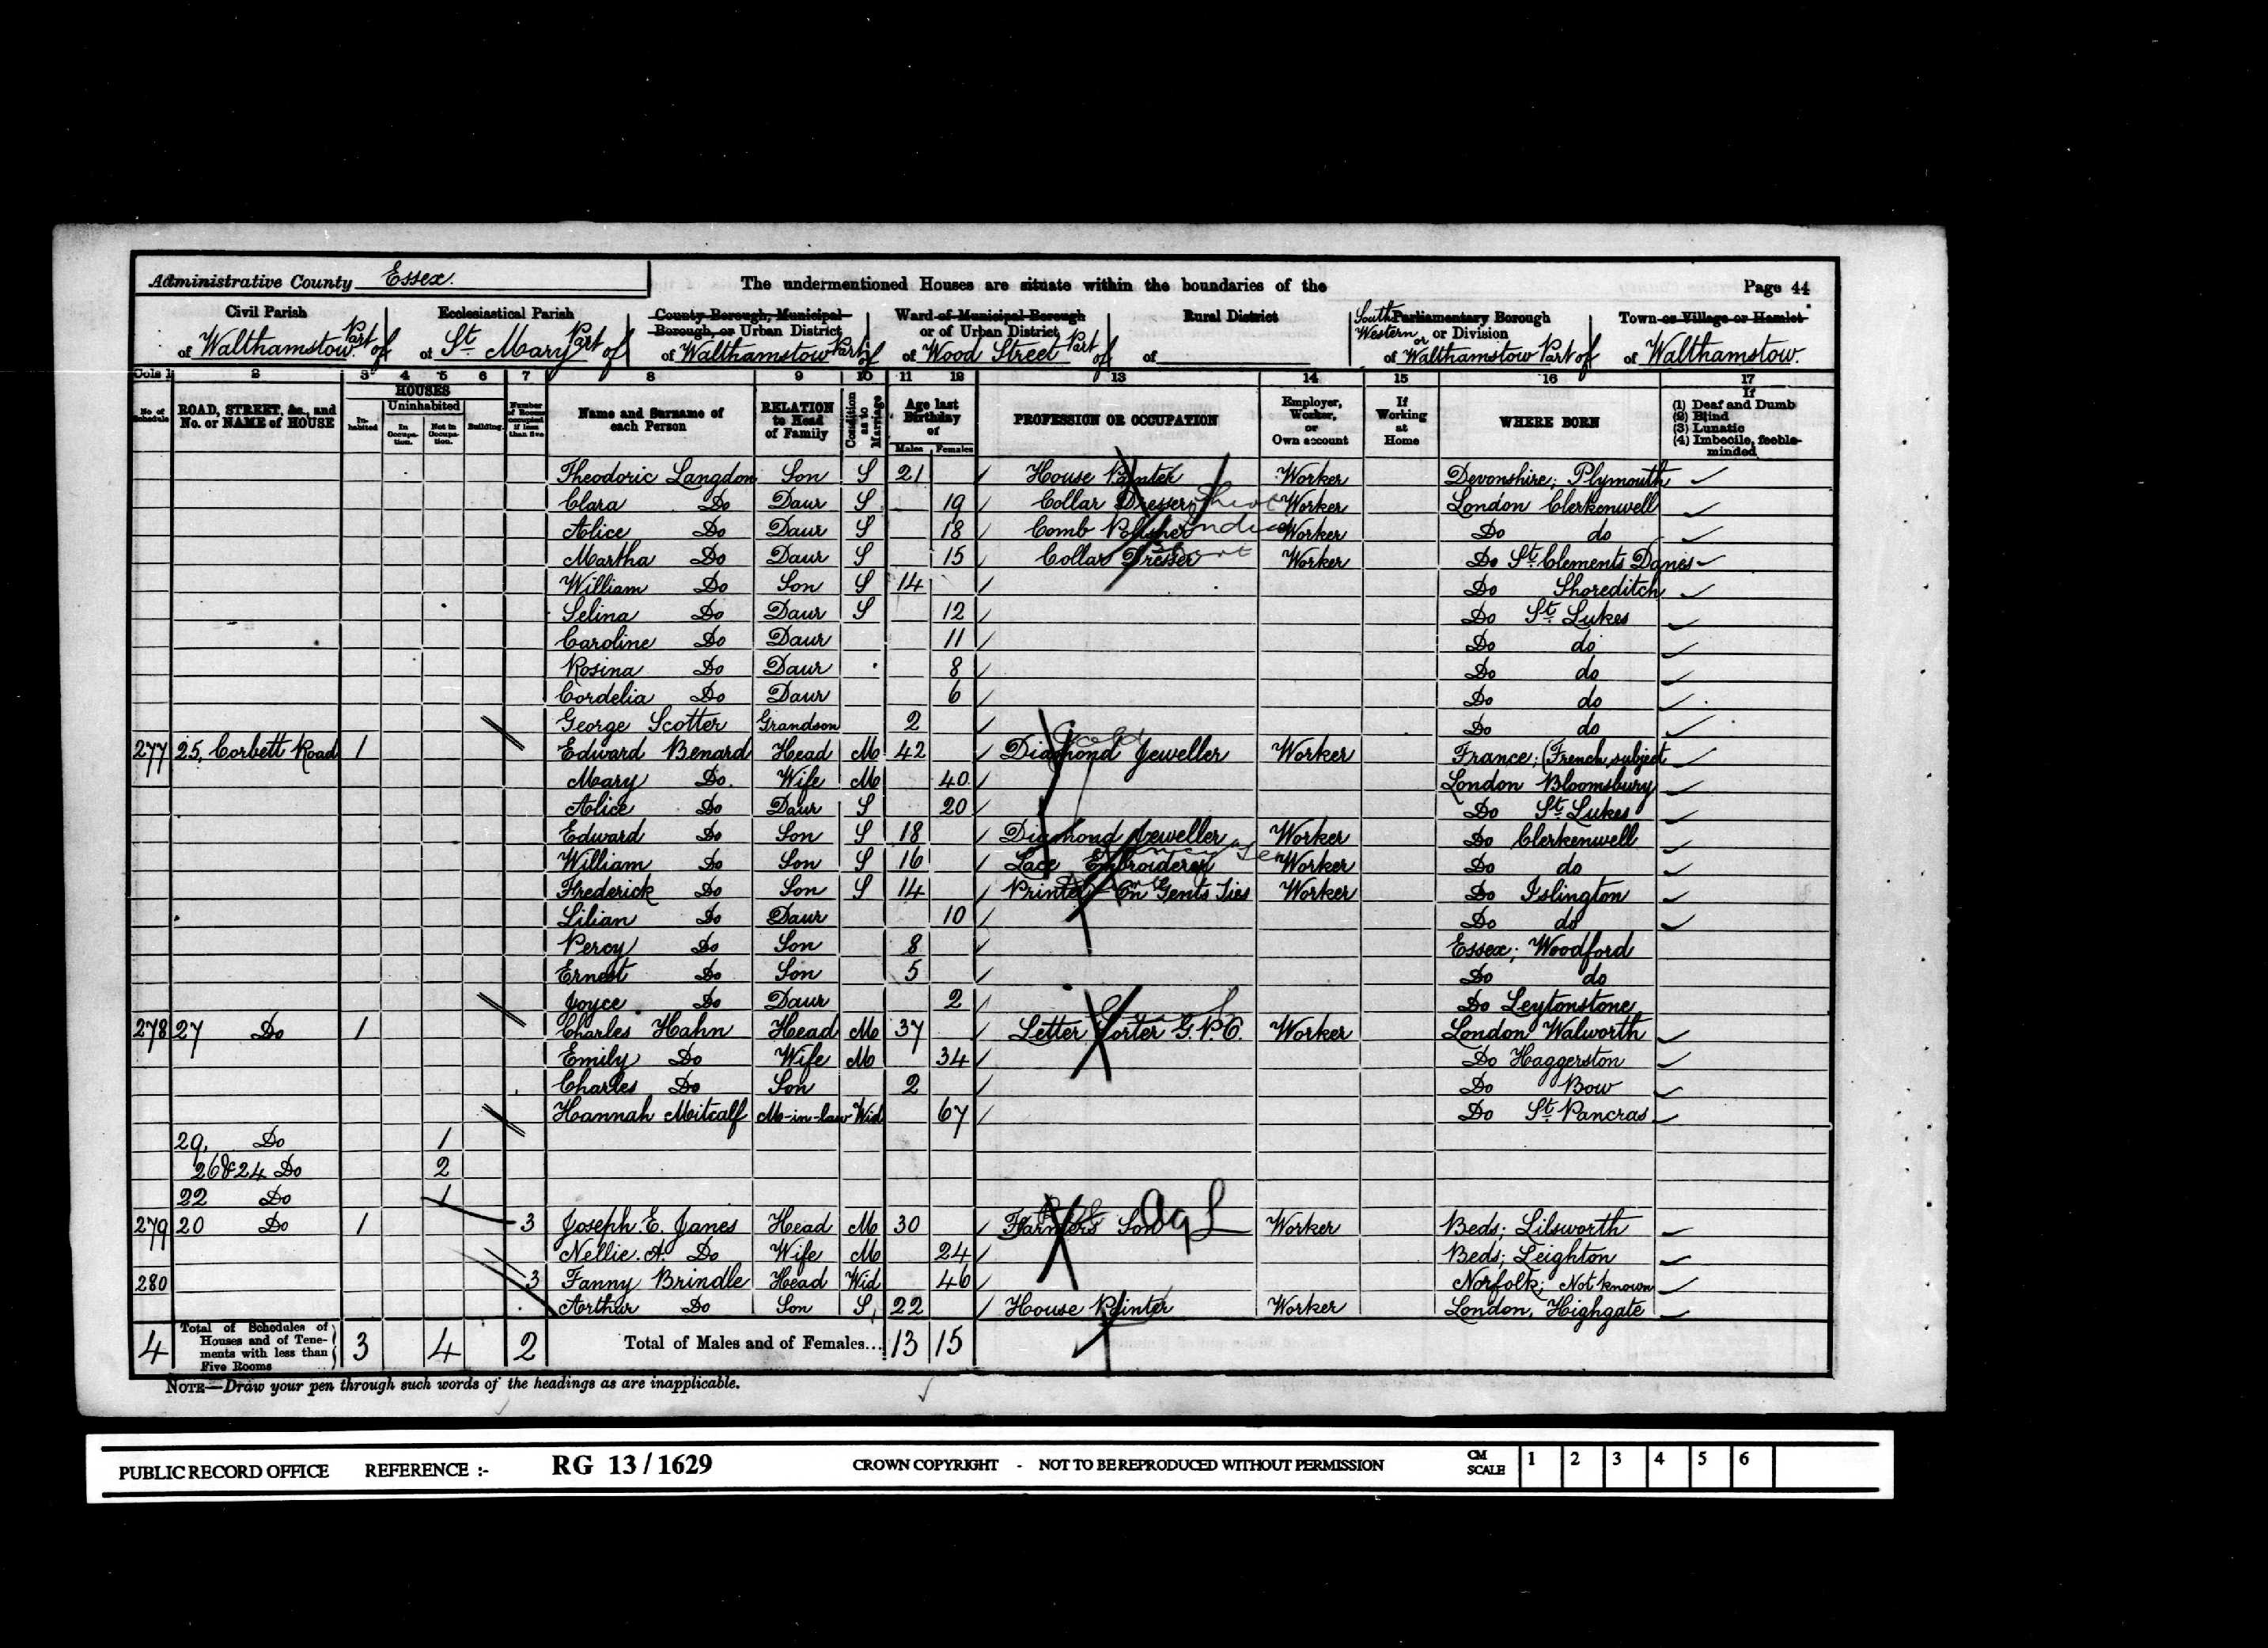 Administrative County Essex. The undermentioned Houses are situate within the boundaries of the Page 44
Civil Parish of Walthamstow Part of
Ecclesiastical Parish of St. Mary Part of
County Borough, Municipal Borough, or Urban District of Walthamstow Part of
Ward of Municipal Borough or of Urban District of Wood Street Part of
Rural District of
South Western Parliamentary Borough or Division of Walthamstow Part of
Town or Village or Hamlet of Walthamstow.
Cols 1 2 3 4 5 6 7 8 9 10 11 12 13 14 15 16 17
No. of Schedule
ROAD, STREET, &c., and No. or NAME of HOUSE
HOUSES
Inhabited
Uninhabited
In Occupation.
Not in Occupation.
Building.
Number of Rooms occupied if less than five
Name and Surname of each Person
RELATION to Head of Family
Condition as to Marriage
Age last Birthday of
Males Females
PROFESSION OR OCCUPATION
Employer, Worker, or Own account
If Working at Home
WHERE BORN
If
(1) Deaf and Dumb
(2) Blind
(3) Lunatic
(4) Imbecile, feeble-minded
Theodoric Langdon Son S 21 House Painter Worker Devonshire; Plymouth
Clara Do Daur S 19 Collar Dresser Worker London Clerkenwell
Alice Do Daur S 18 Comb Polisher Worker Do do
Martha Do Daur S 15 Collar Dresser Worker Do St. Clements Danes
William Do Son S 14 Do Shoreditch
Selina Do Daur S 12 Do St. Lukes
Caroline Do Daur 11 Do do
Rosina Do Daur 8 Do do
Cordelia Do Daur 6 Do do
George Scotter Grandson 2 Do do
277 25, Corbett Road 1 Edward Benard Head M 42 Diamond Jeweller Worker France; (French subject
Mary Do. Wife M 40 London Bloomsbury
Alice Do Daur S 20 Do St. Lukes
Edward Do Son S 18 Diamond Jeweller Worker Do Clerkenwell
William Do Son S 16 Lace Embroiderer Worker Do do
Frederick Do Son S 14 Printer On Gents Ties Worker Do Islington
Lilian Do Daur 10 Do do
Percy Do Son 8 Essex; Woodford
Ernest Do Son 5 Do do
Joyce Do Daur 2 Do Leytonstone
278 27 Do 1 Charles Hahn Head M 37 Letter Sorter G.P.O. Worker London Walworth
Emily Do Wife M 34 Do Haggerston
Charles Do Son 2 Do Bow
Hannah Mitcalf M-in-law Wid 67 Do St. Pancras
29, Do 1
26 & 24 Do 2
22 Do 1
279 20 Do 1 3 Joseph. E. Janes Head M 30 Farmers Son Ag L Worker Beds; Lilsworth
Nellie. A. Do Wife M 24 Beds; Leighton
280 3 Fanny Brindle Head Wid 46 Norfolk; Not known
Arthur Do Son S 22 House Painter Worker London, Highgate
4 Total of Schedules of Houses and of Tenements with less than Five Rooms 3 4 2 Total of Males and of Females... 13 15
NOTE—Draw your pen through such words of the headings as are inapplicable.
PUBLIC RECORD OFFICE REFERENCE :- RG 13 / 1629 CROWN COPYRIGHT - NOT TO BE REPRODUCED WITHOUT PERMISSION CM SCALE 1 2 3 4 5 6